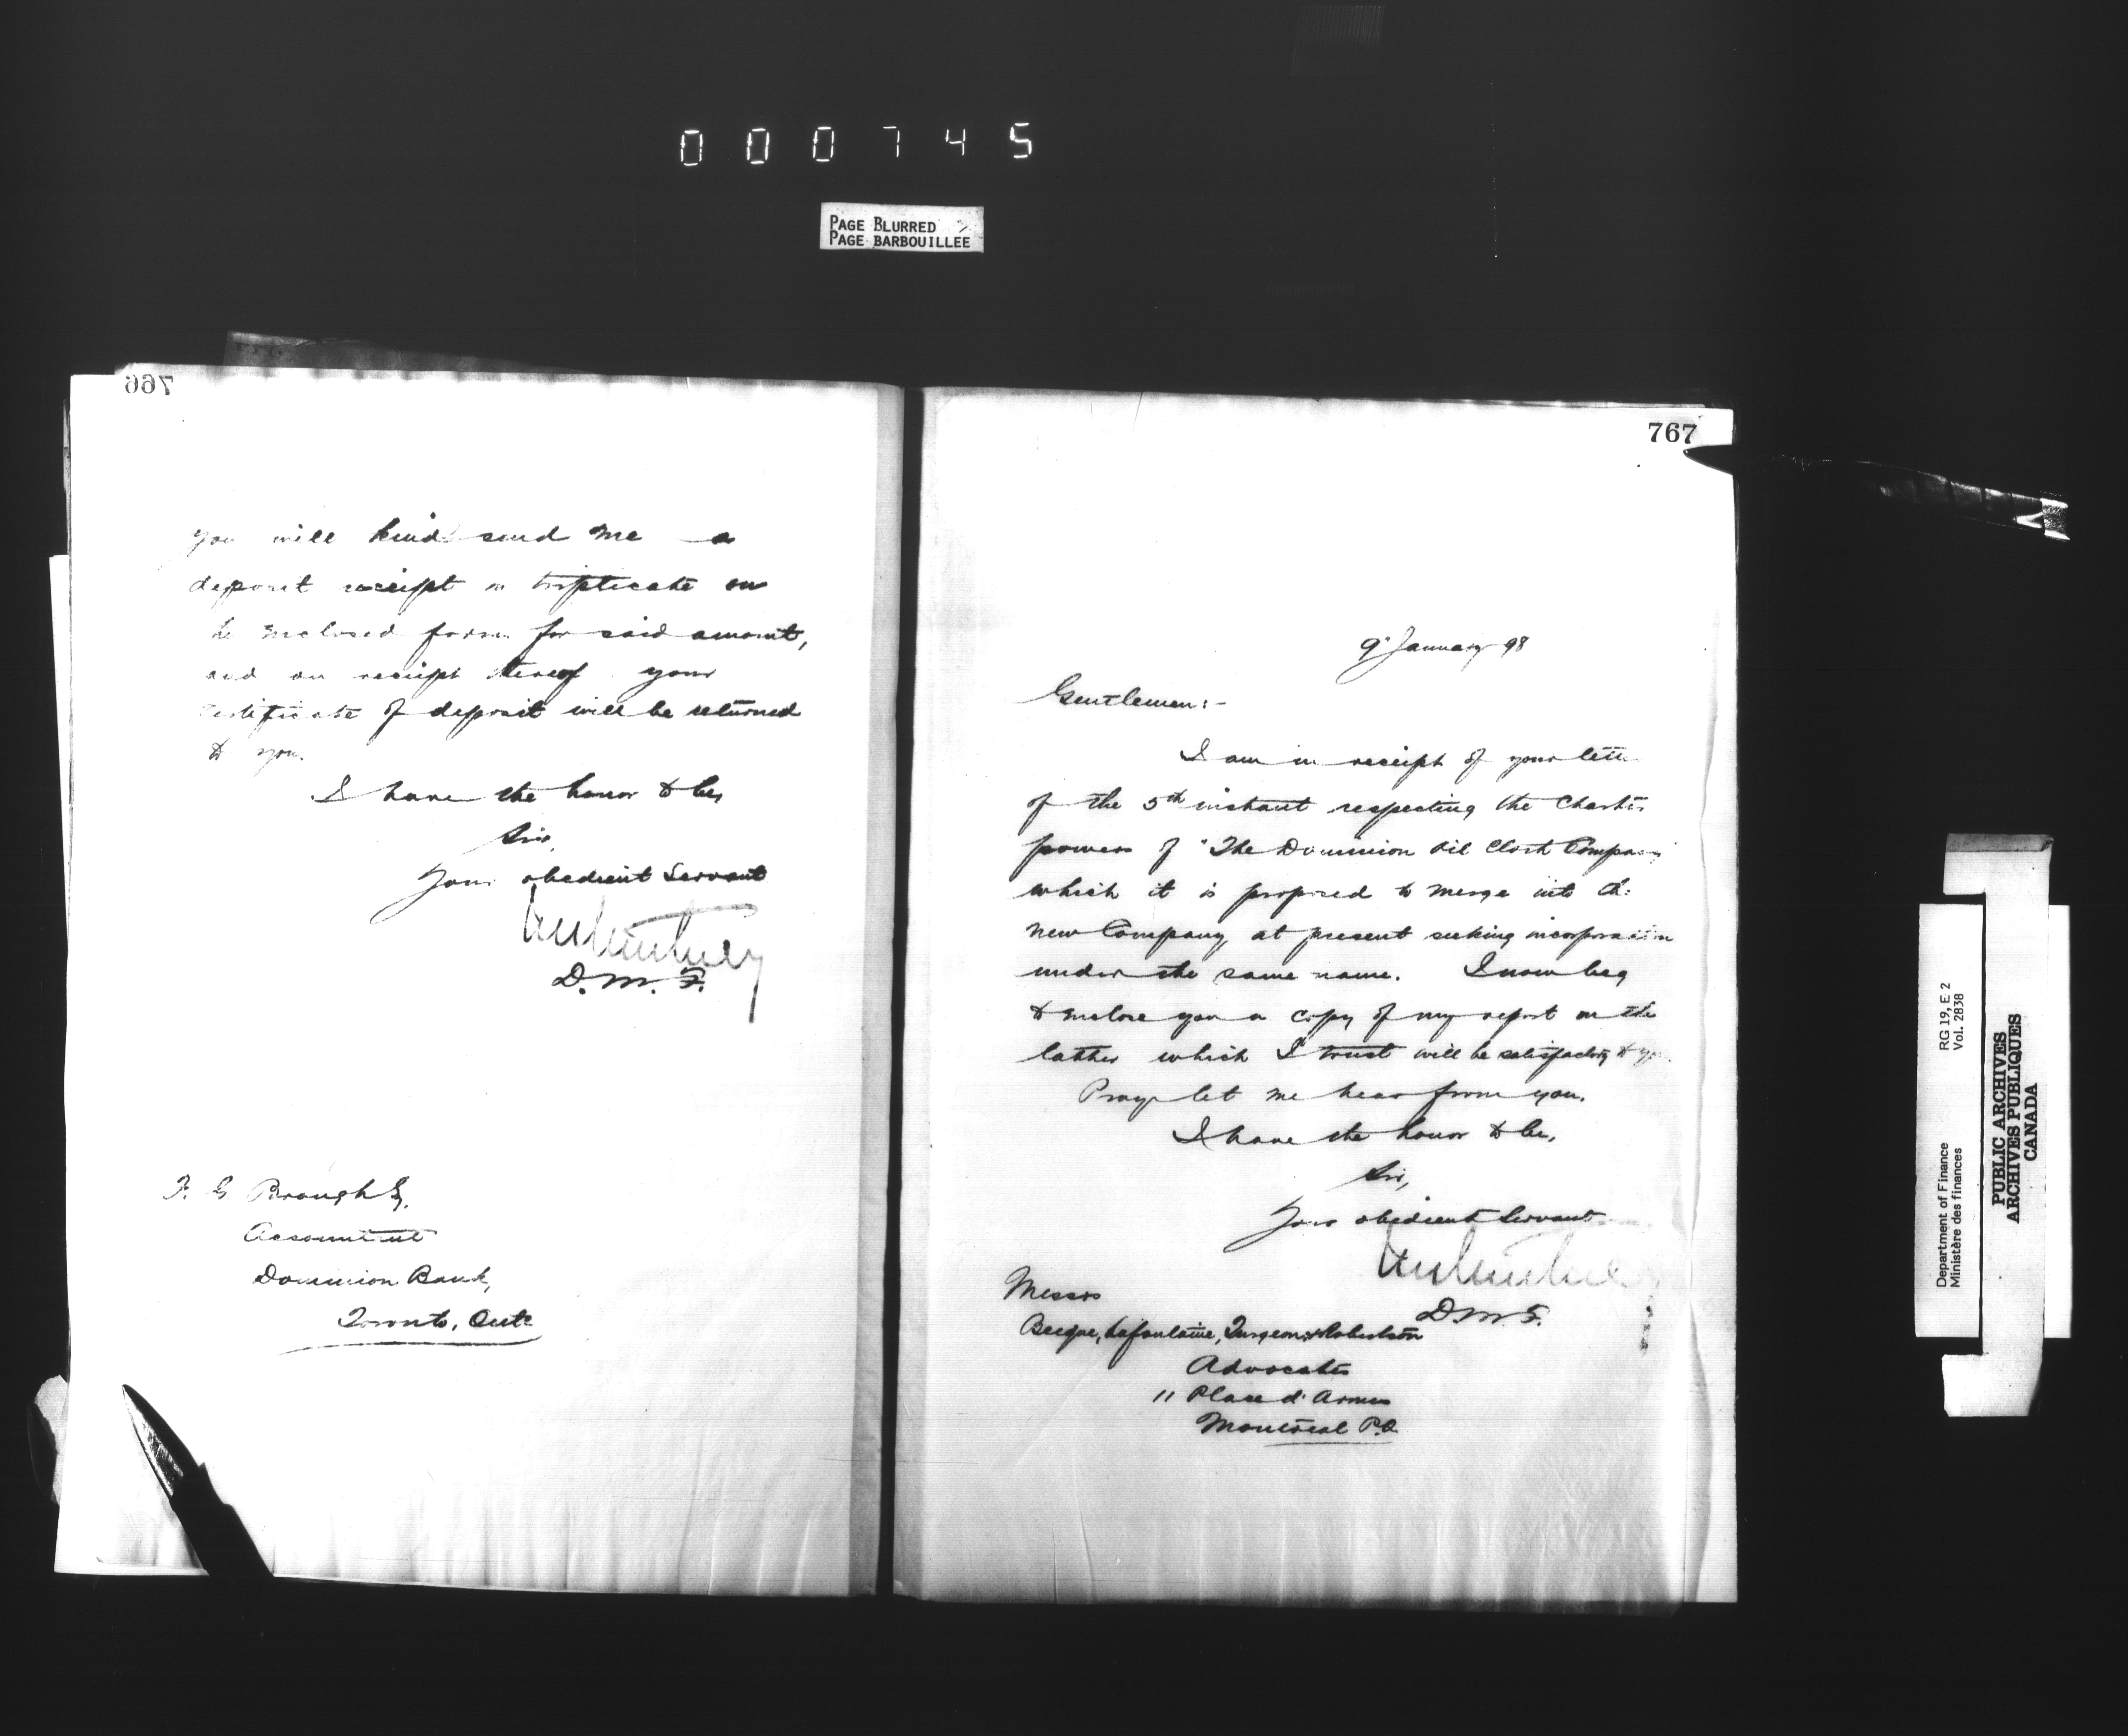 000745
PAGE BLURRED
PAGE BARBOUILLEE
766
you will kind send me a
deposit receipt in triplicate on
the enclosed form for said amount,
and on receipt thereof your
certificate of deposit will be returned
to you.
I have the honor to be,
Sir,
Your obedient Servant
D. M. F.
F. G Brough Esq.
Accountant
Dominion Bank,
Toronto, Ont.
767
9" January 98
Gentlemen:-
I am in receipt of your letter
of the 5th instant respecting the Charter
powers of "The Dominion Oil Cloth Company
which it is proposed to merge into the
new Company at present seeking incorporation
under the same name. I now beg
to enclose you a copy of my report on the
latter which I trust will be satisfactory to you.
Pray let me hear from you.
I have the honor to be,
Sir,
Your obedient Servant
D. M. F.
Messrs
Beique, Lafontaine, Turgeon & Robertson
Advocates
11 Place d'Armes
Montreal P.Q.
Department of Finance
Ministère des finances
RG 19, E 2
Vol. 2838
PUBLIC ARCHIVES
ARCHIVES PUBLIQUES
CANADA